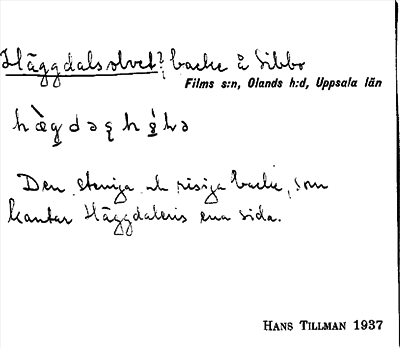 Häggdalsolvet? backe å Sibbo
Films s:n, Olands h:d, Uppsala län
Den steniga och risiga backe, som
kantar Häggdalens ena sida.
HANS TILLMAN 1937